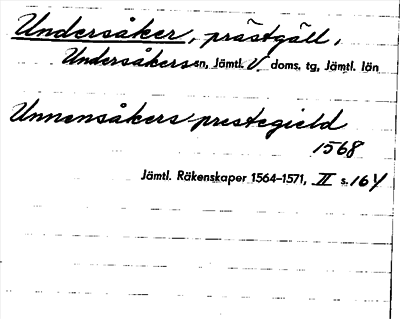 Undersåker, prästgäll,
Undersåkers sn, Jämtl. V. doms. tg, Jämtl. län
Unnensåkers prestegield
1568
Jämtl. Räkenskaper 1564–1571, II s. 164